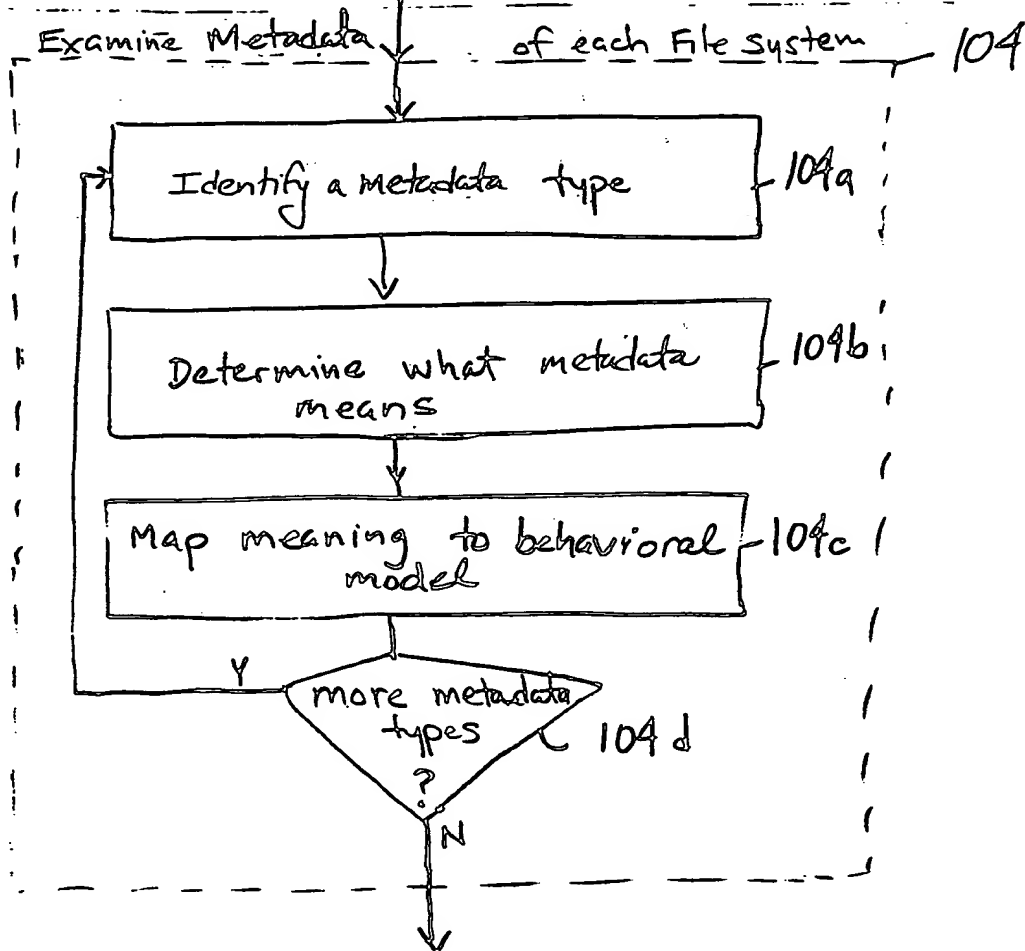 Examine Metadata of each File system 104
Identify a metadata type 104a
Determine what metadata 104b
means
Map meaning to behavioral 104c
model
Y
more metadata
types 104d
?
N